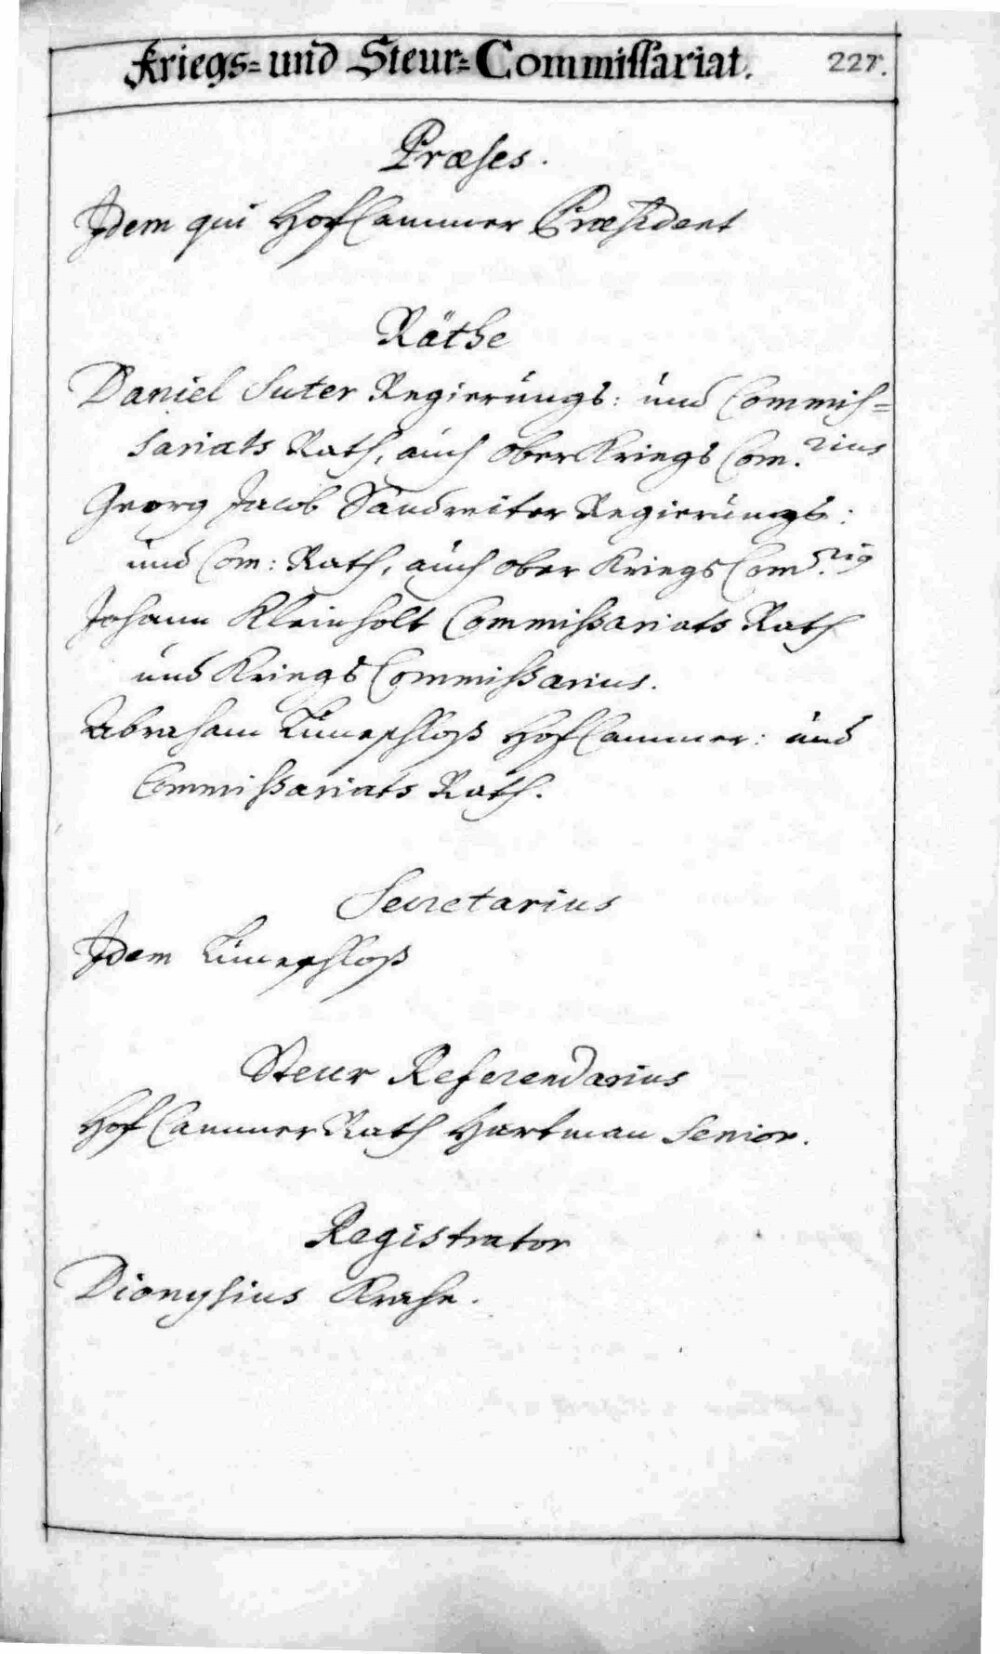 Kriegs= und Steur=Commissariat. 227.
Præses.
Idem qui HofCammer Præsident
Räthe
Daniel Suter Regierungs: und Commis=
sariats Rath, auch ober Kriegs Com.rius
Georg Jacob Sandreiter Regierungs:
und Com: Rath, auch ober Kriegs Com.
Johann Kleinholt Commißariats Rath
und Kriegs Commißarius.
Abraham Lüneschloß HofCammer: und
Commißariats Rath.
Secretarius
Idem Lüneschloß
Steur Referendarius
HofCammerRath Hartman Senior.
Registrator
Dionysius Krahe.